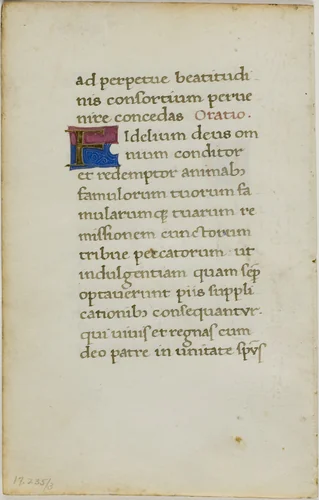 ad perpetue beatitudi
nis consortium perue
nire concedas Oratio.
FIdelium deus om
nium conditor
et redemptor animabꝫ
famulorum tuorum fa
mularumqꝫ tuarum re
missionem cunctorum
tribue peccatorum ut
indulgentiam quam sēp
optauerunt piis suppli
cationibꝫ consequantur.
qui uiuis et regnas cum
deo patre in unitate spūs
17.255/3